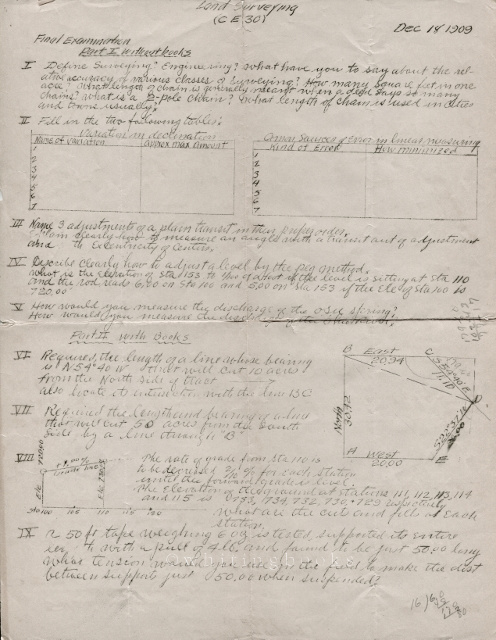 Land Surveying
(C E 30)
Dec 18 1909
Final Examination
Part I without books
I Define Surveying? Engineering? What have you to say about the rel-
ative accuracy of various classes of surveying? How many square feet in one
acre? What length of chain is generally meant when a deed says so many
chains? What is a 2-pole chain? What length of chain is used in cities
and more usually?
II Fill in the two following tables.
Variation in declination
Name of Variation approx max amount
1
2
3
4
5
6
7
Common Sources of Error in lineal measuring
Kind of Error How minimized
1
2
3
4
5
6
7
III Name 3 adjustments of a plain transit in their proper order.
Explain clearly how to measure an angle with a transit out of adjustment
and to Eccentricity of centers.
IV Describe clearly how to adjust a level by the peg method.
What is the elevation of Sta 153 if the level is sitting at Sta 110
and the rod reads 6.00 on Sta 100 and 5.00 on Sta 153 if the Ele of Sta 100 is
720.00'
V How would you measure the discharge of the spring?
How would you measure the
Part II with Books
VI Required, the length of a line whose bearing
is N 54° 40' W that will cut 10 acres
from the North side of tract
also locate its intersection with the line BC
B East C
20.34
North
30.72
A West E
20.00
D
VII Required the length and bearing of a line
that will cut 50 acres from the South
side by a line through "B"
VIII The rate of grade from Sta 110 is
to be depressed 2/10 % for each station
until the forward grade is level.
The Elevation of the ground at stations 111, 112, 113, 114
and 115 is 733, 734, 732, 730, 729 respectively
What are the cuts and fills at each
station.
IX A 50 ft tape weighing 6 oz is tested supported its entire
length with a pull of 4 lb and found to be just 50.00 long
What tension would you use in the field to make the dist
between supports just 50.00 when suspended?